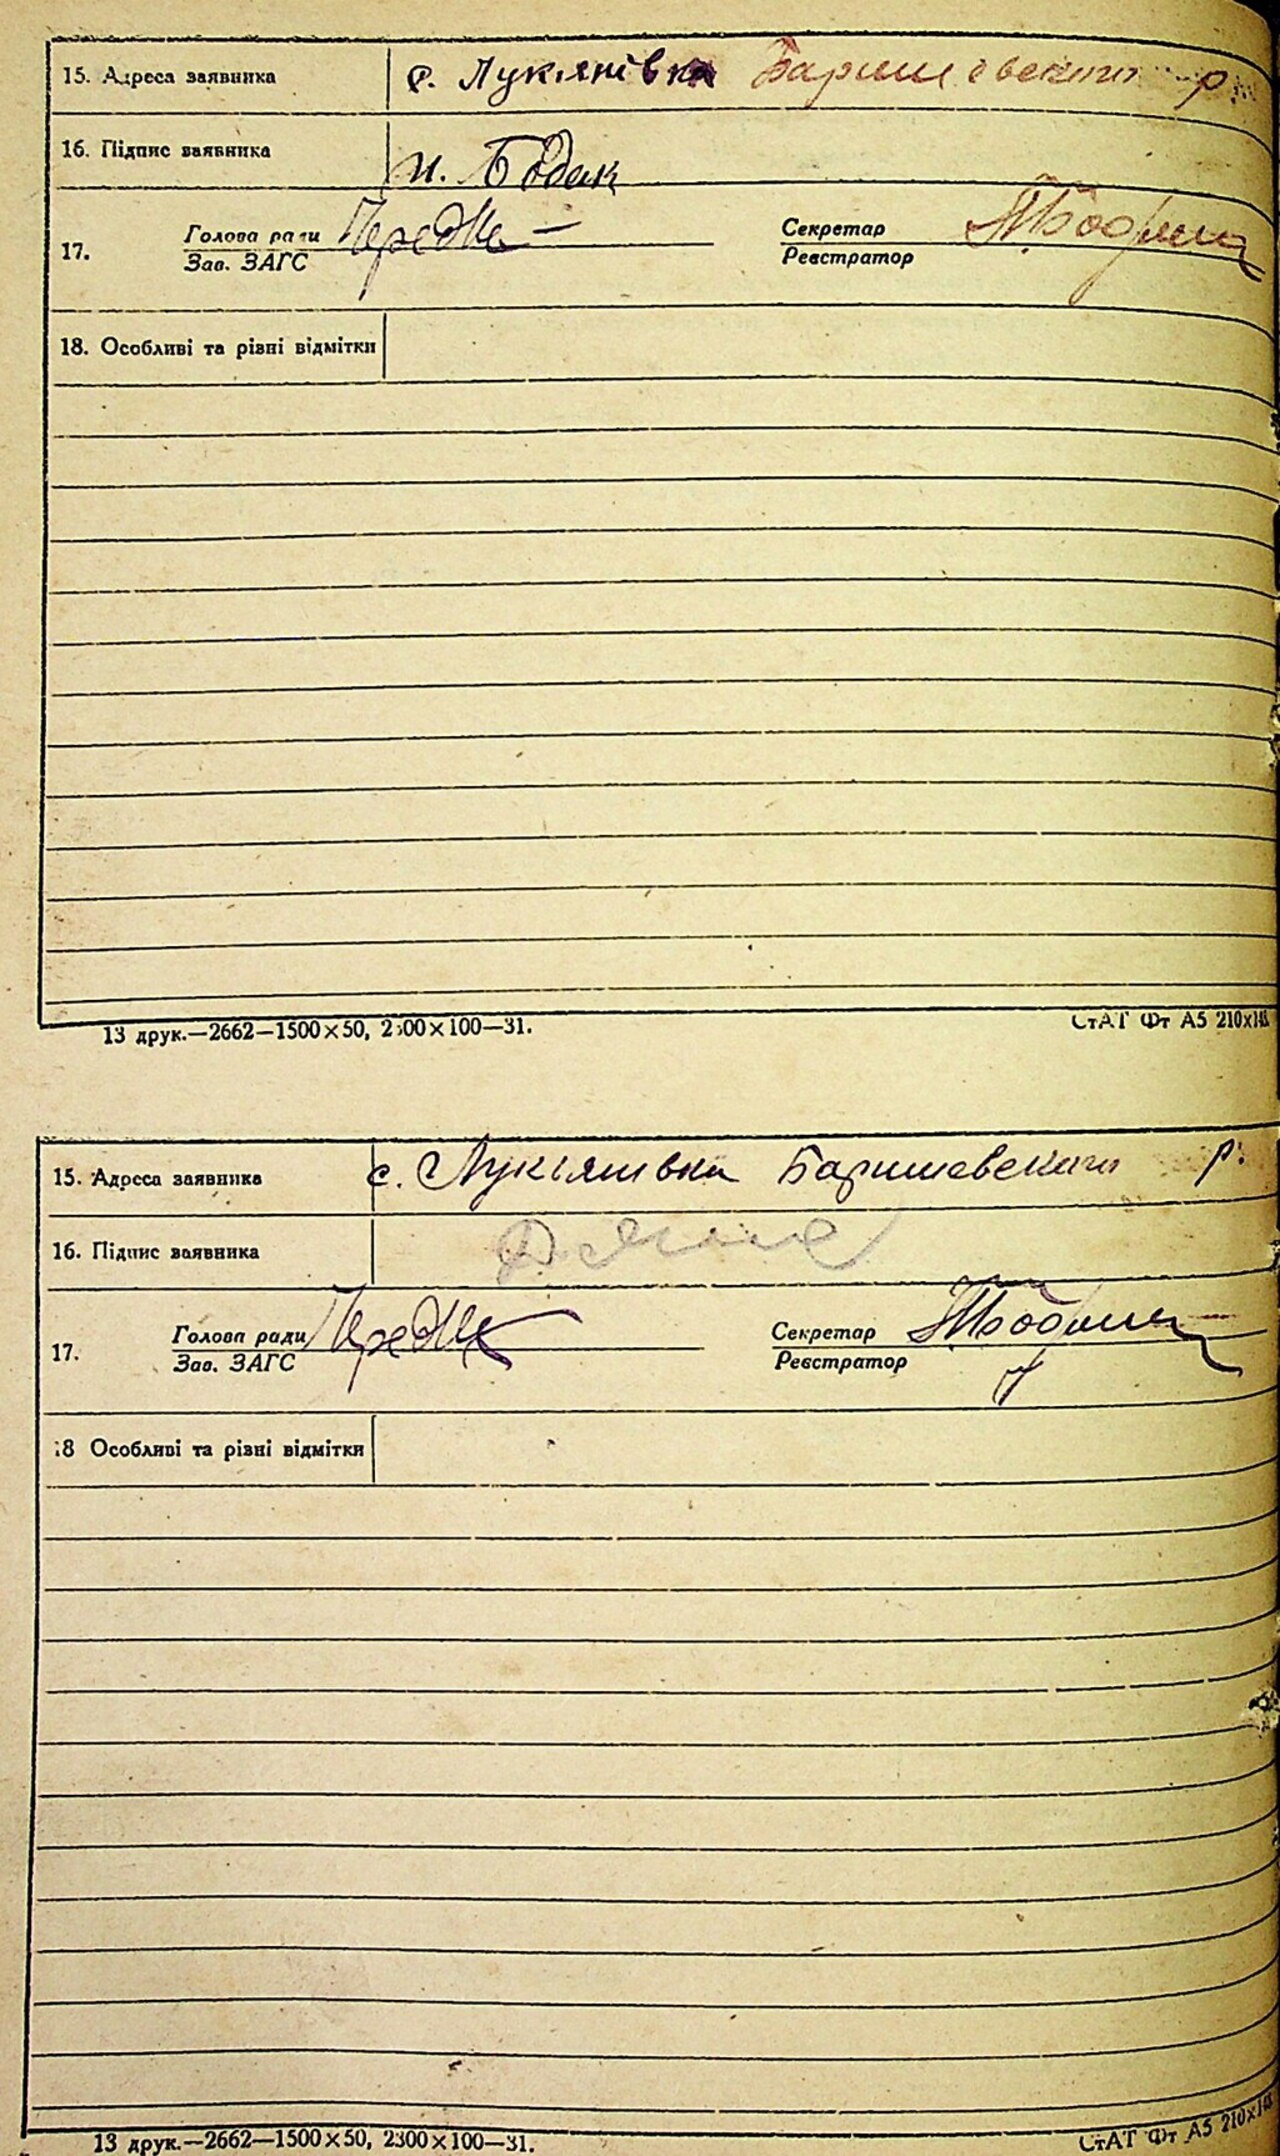 15. Адреса заявника с. Лукянівка Баришевського р.
16. Підпис заявника И. Бодак
17. Голова ради Секретар
Зав. ЗАГС Реєстратор
18. Особливі та різні відмітки
13 друк.—2662—1500×50, 2300×100—31. СтАТ Фт А5 210х148
15. Адреса заявника с. Лукьянівка Баришевського р.
16. Підпис заявника
17. Голова ради Секретар
Зав. ЗАГС Реєстратор
18 Особливі та різні відмітки
13 друк.—2662—1500×50, 2300×100—31. СтАТ Фт А5 210х148